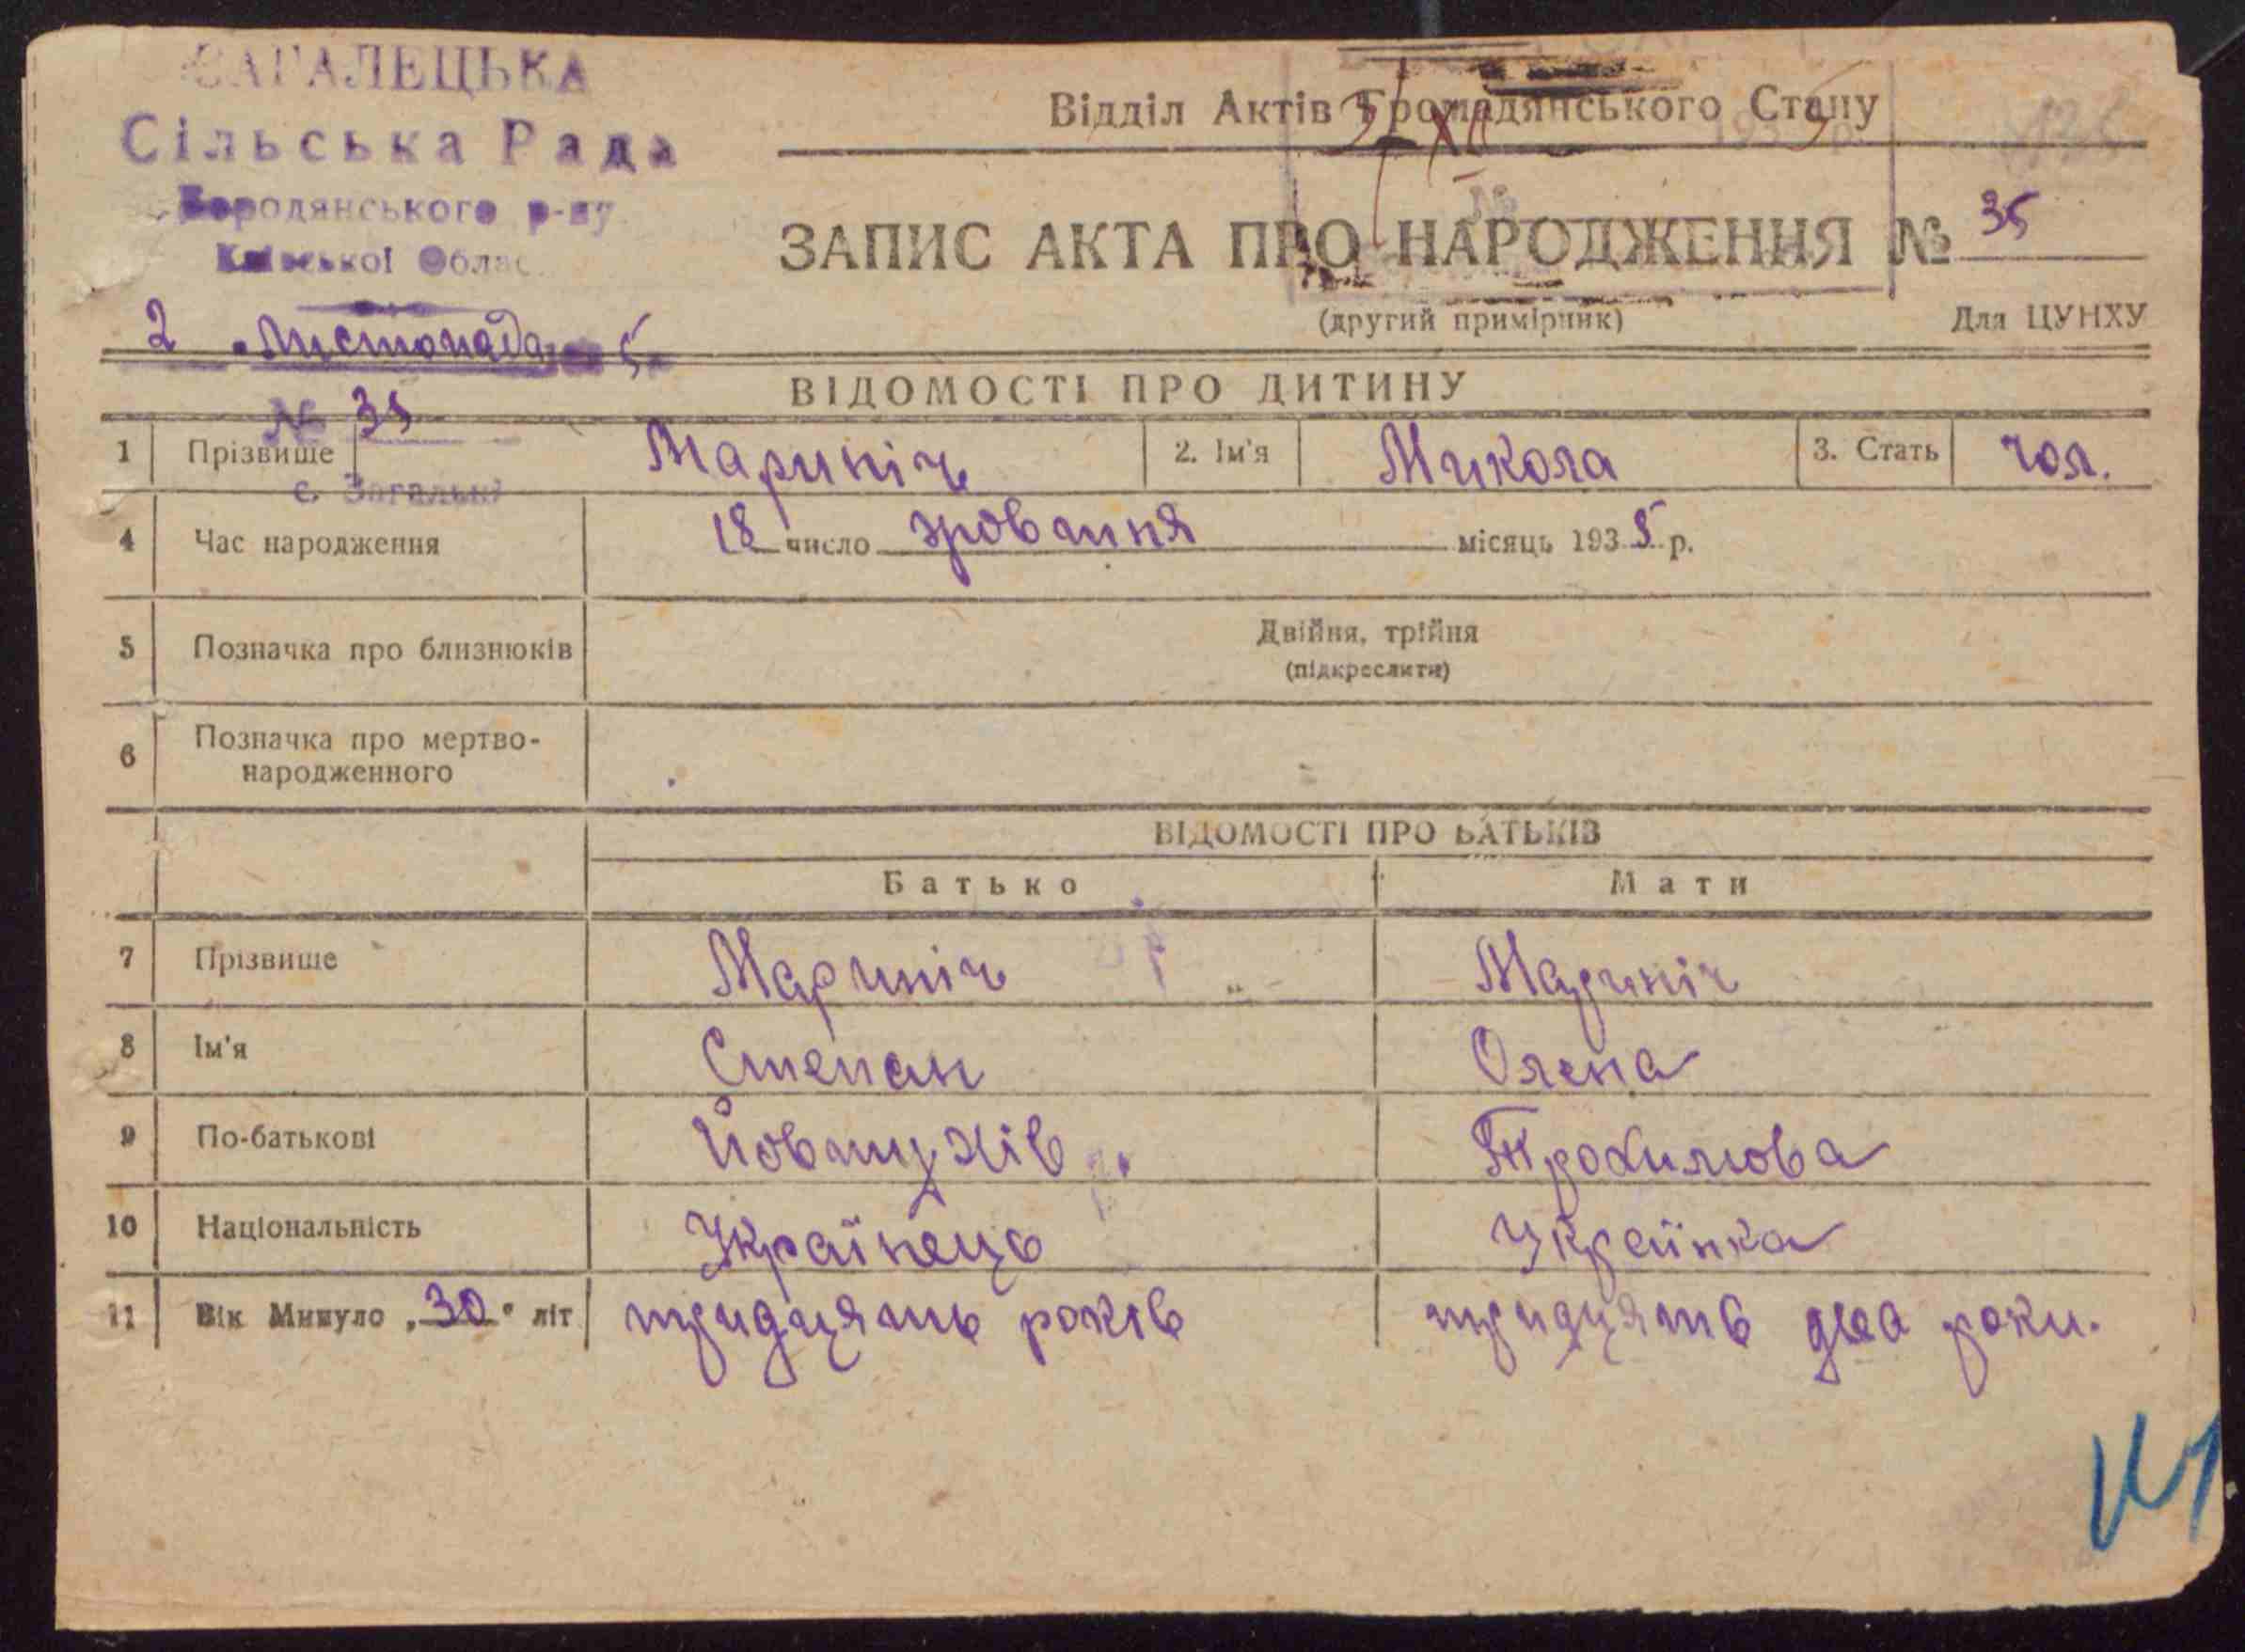 ЗАГАЛЕЦЬКА
Сільська Рада
Бородянського р-ну
Київської Облас.
2 листопада 5
№ 35
с. Загальці
Відділ Актів Громадянського Стану
ЗАПИС АКТА ПРО НАРОДЖЕННЯ № 35
(другий примірник)
Для ЦУНХУ
ВІДОМОСТІ ПРО ДИТИНУ
1 Прізвище Мариніч 2. Ім'я Микола 3. Стать чол.
4 Час народження 18 число жовтня місяць 1935 р.
5 Позначка про близнюків Двійня, трійня
(підкреслити)
6 Позначка про мертво-
народженного
ВІДОМОСТІ ПРО БАТЬКІВ
Батько Мати
7 Прізвище Мариніч Мариніч
8 Ім'я Степан Олена
9 По-батькові Йовтухів Трохимова
10 Національність Українець Українка
11 Вік Минуло „30" літ тридцять років тридцять два роки.